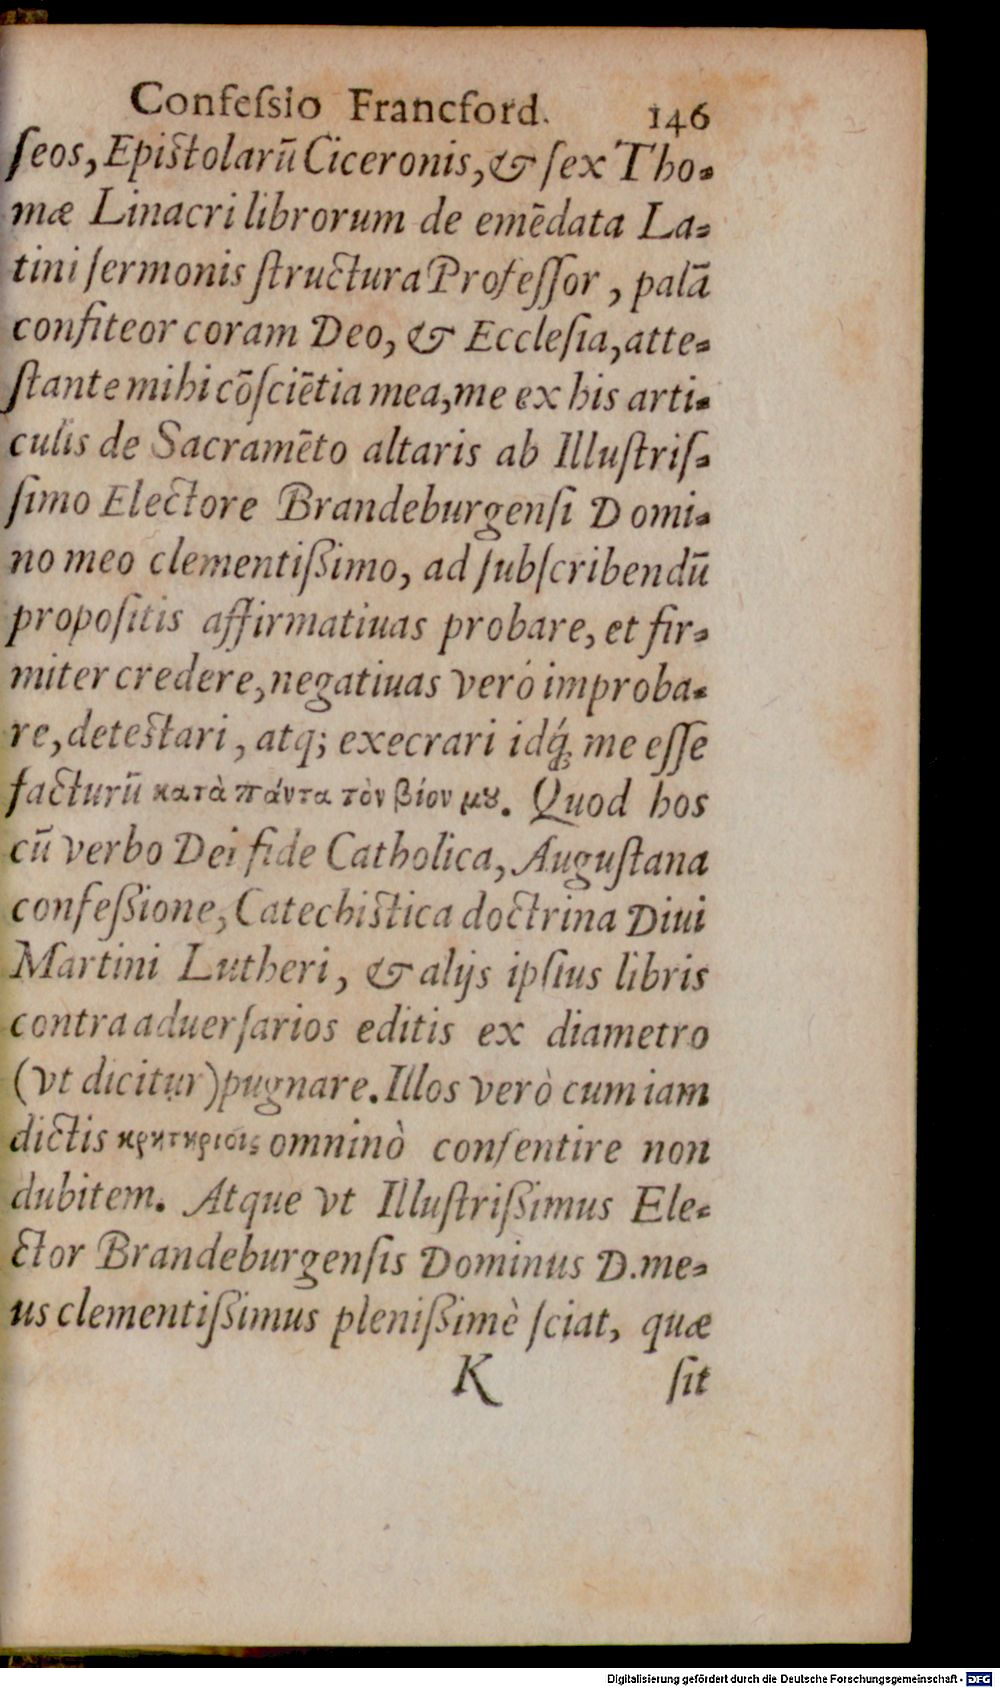 Confeſsio Francford. 146
ſeos, Epiſtolarū Ciceronis, & ſex Tho-
mæ Linacri librorum de emēdata La-
tini ſermonis ſtructura Profeſſor, palā
confiteor coram Deo, & Eccleſia, atte-
ſtante mihi cōſciētia mea, me ex his arti-
culis de Sacramēto altaris ab Illuſtriſ-
ſimo Electore Brandeburgenſi Domi-
no meo clementiſſimo, ad ſubſcribendū
propoſitis affirmatiuas probare, et fir-
miter credere, negatiuas verò improba-
re, deteſtari, atq; execrari idq́; me eſſe
facturū κατὰ πάντα τὸν βίον μȣ. Quod hos
cū verbo Dei fide Catholica, Auguſtana
confeſſione, Catechiſtica doctrina Diui
Martini Lutheri, & alijs ipſius libris
contra aduerſarios editis ex diametro
(vt dicitur) pugnare. Illos verò cum iam
dictis κρητηρίοις omninò conſentire non
dubitem. Atque vt Illuſtriſſimus Ele-
ctor Brandeburgenſis Dominus D. me-
us clementiſſimus pleniſſimè ſciat, quæ
K ſit
Digitalisierung gefördert durch die Deutsche Forschungsgemeinschaft - DFG